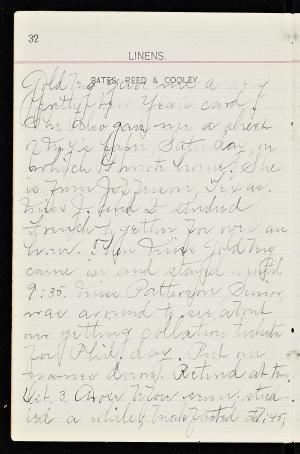 32
LINENS.
BATES, REED & COOLEY.
Goldberg gave me a very
pretty New Years card.
She also gave me a sheet
of paper, Saturday, on
which I wrote home. She
is from Jefferson, Texas.
Miss J. and I studied
French together for over an
hour. Then Miss Goldberg
came in and stayed until
9:35. Miss Patterson Senior
was around to see about
our getting collation tickets
for Phil. day. Put our
names down. Retired at ten.
Oct. 3. Arose before seven. stud-
ied a while, breakfasted at 7:45,